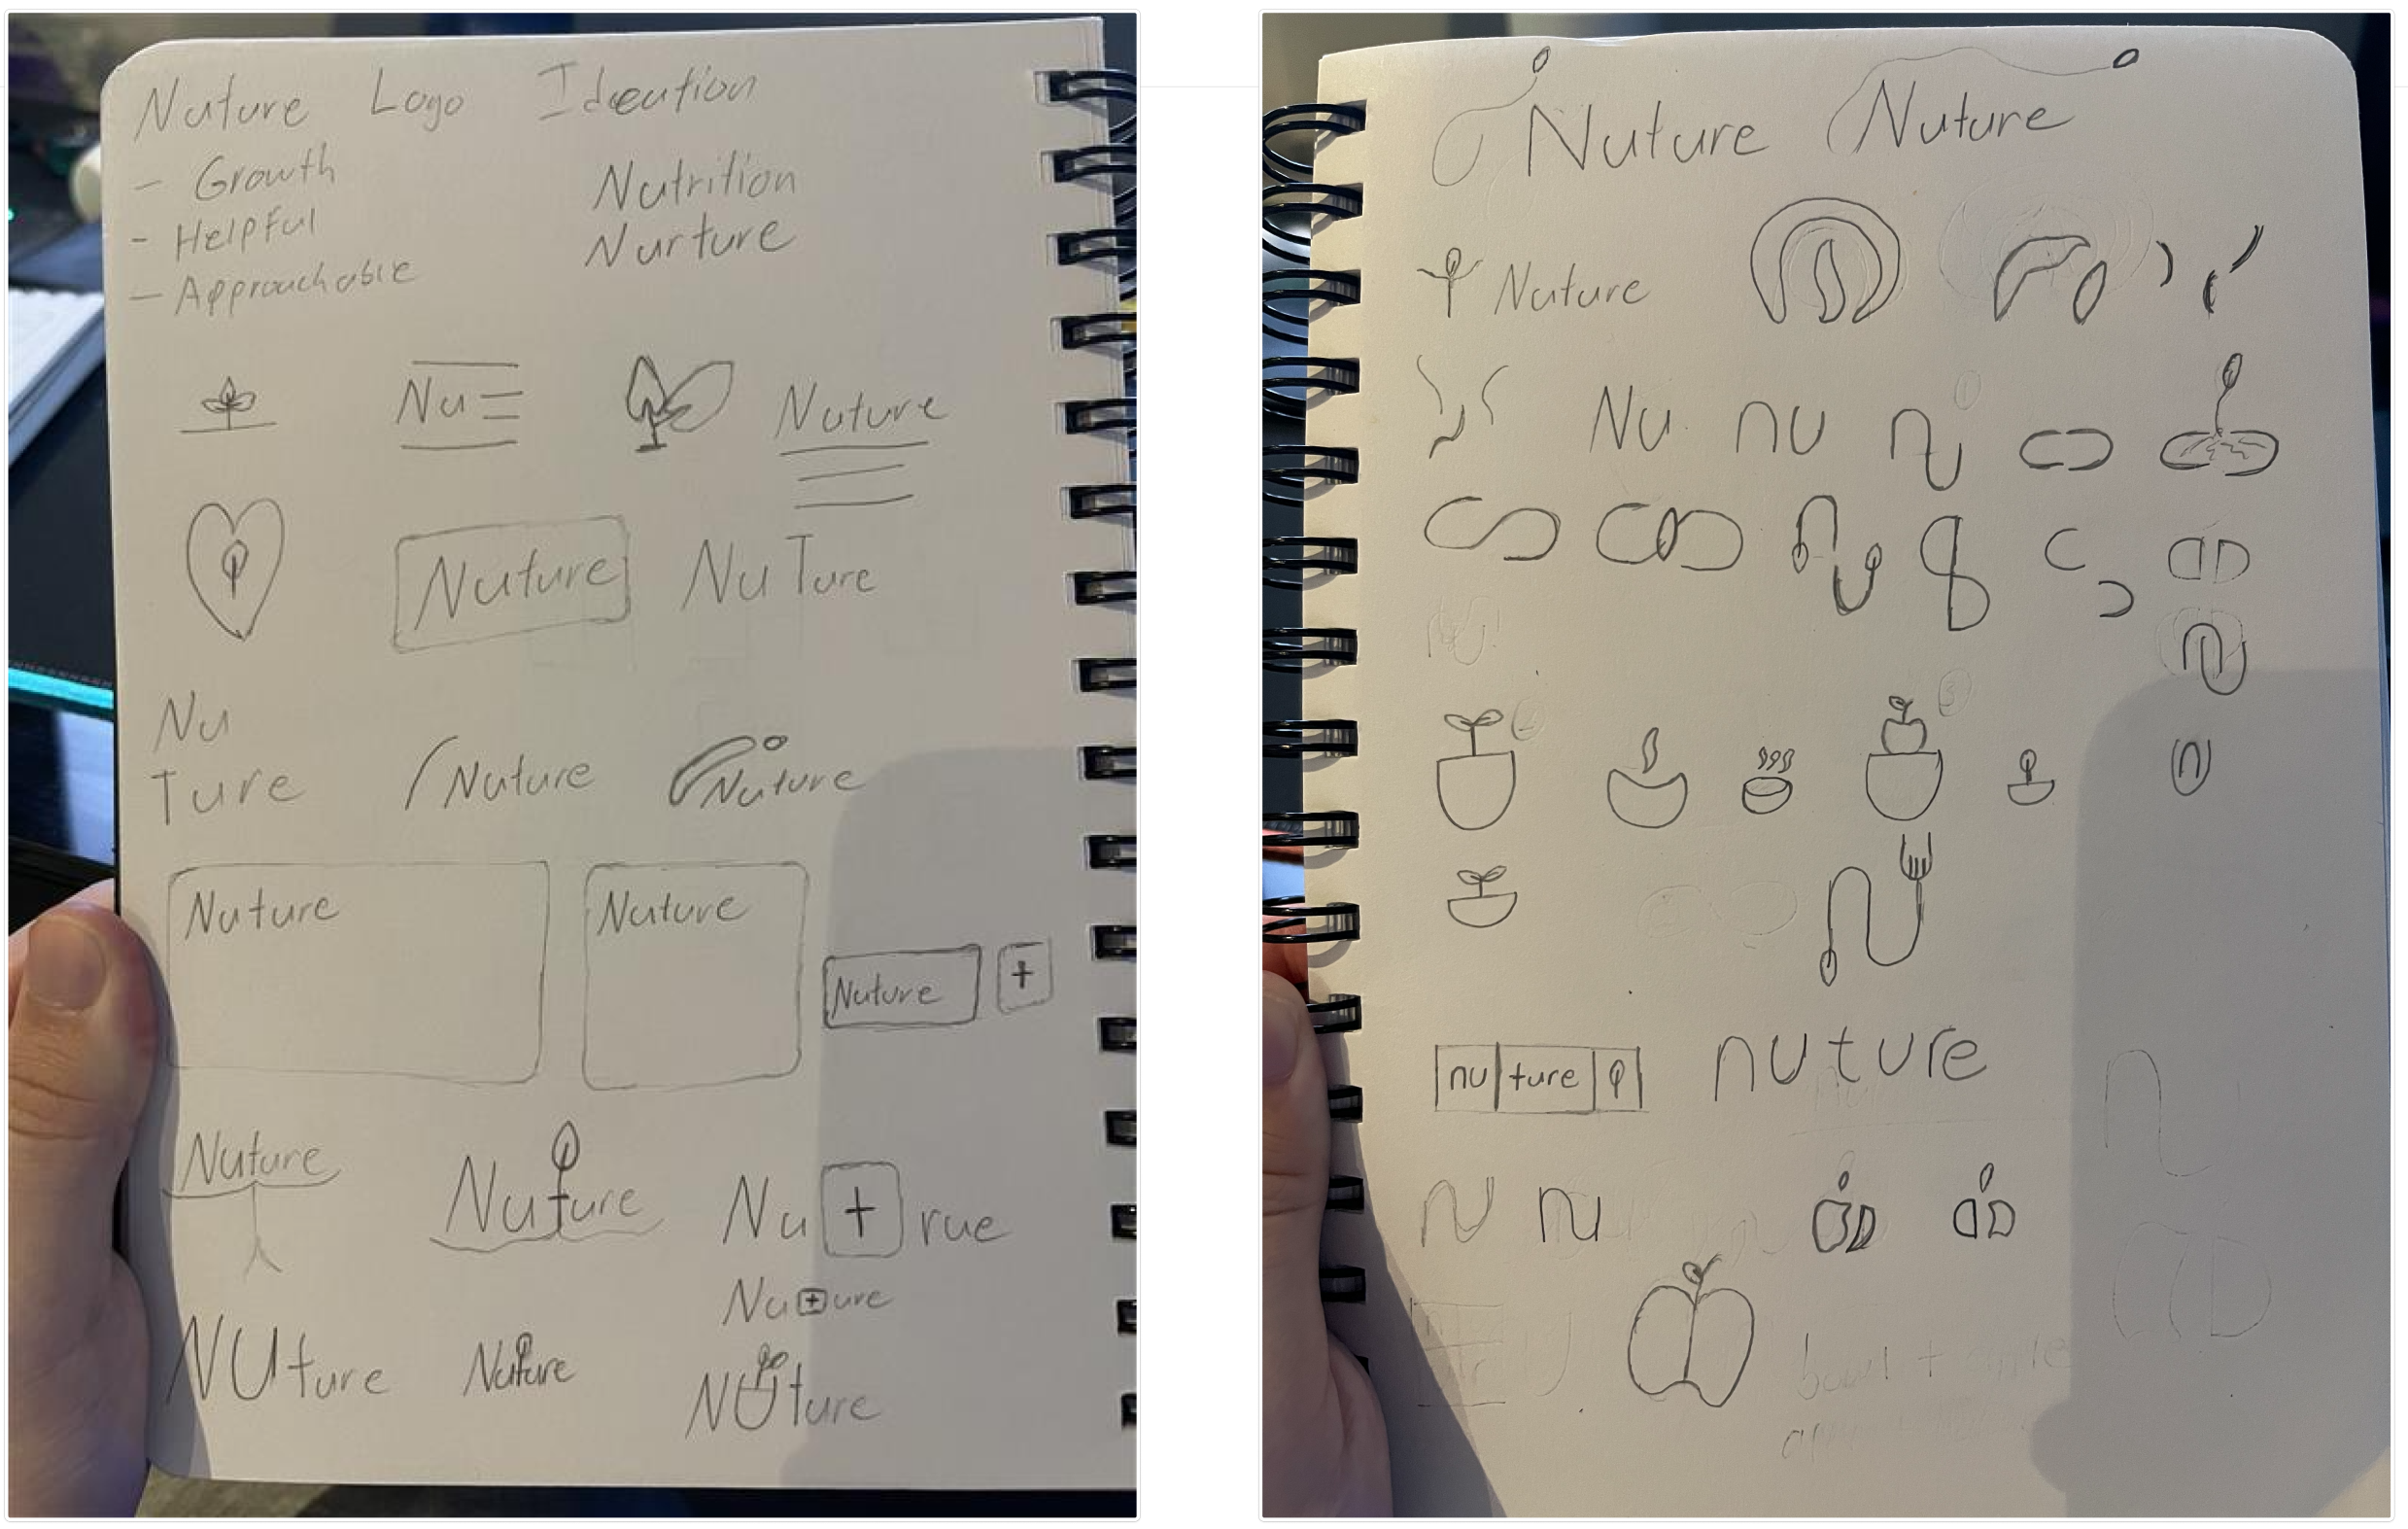 Nuture Logo Ideation
- Growth
- Helpful
- Approachable
Nutrition
Nurture
Nu
Nuture
Nuture
NuTure
Nu
Ture
Nuture
Nuture
Nuture
Nuture
Nuture
+
Nuture
Nuture
Nu + rue
Nu+ure
NUture
Nuture
NUture
Nuture
Nuture
Nuture
Nu
nu
nu
1
2
3
n
nu ture
nuture
N
nu
bowl +